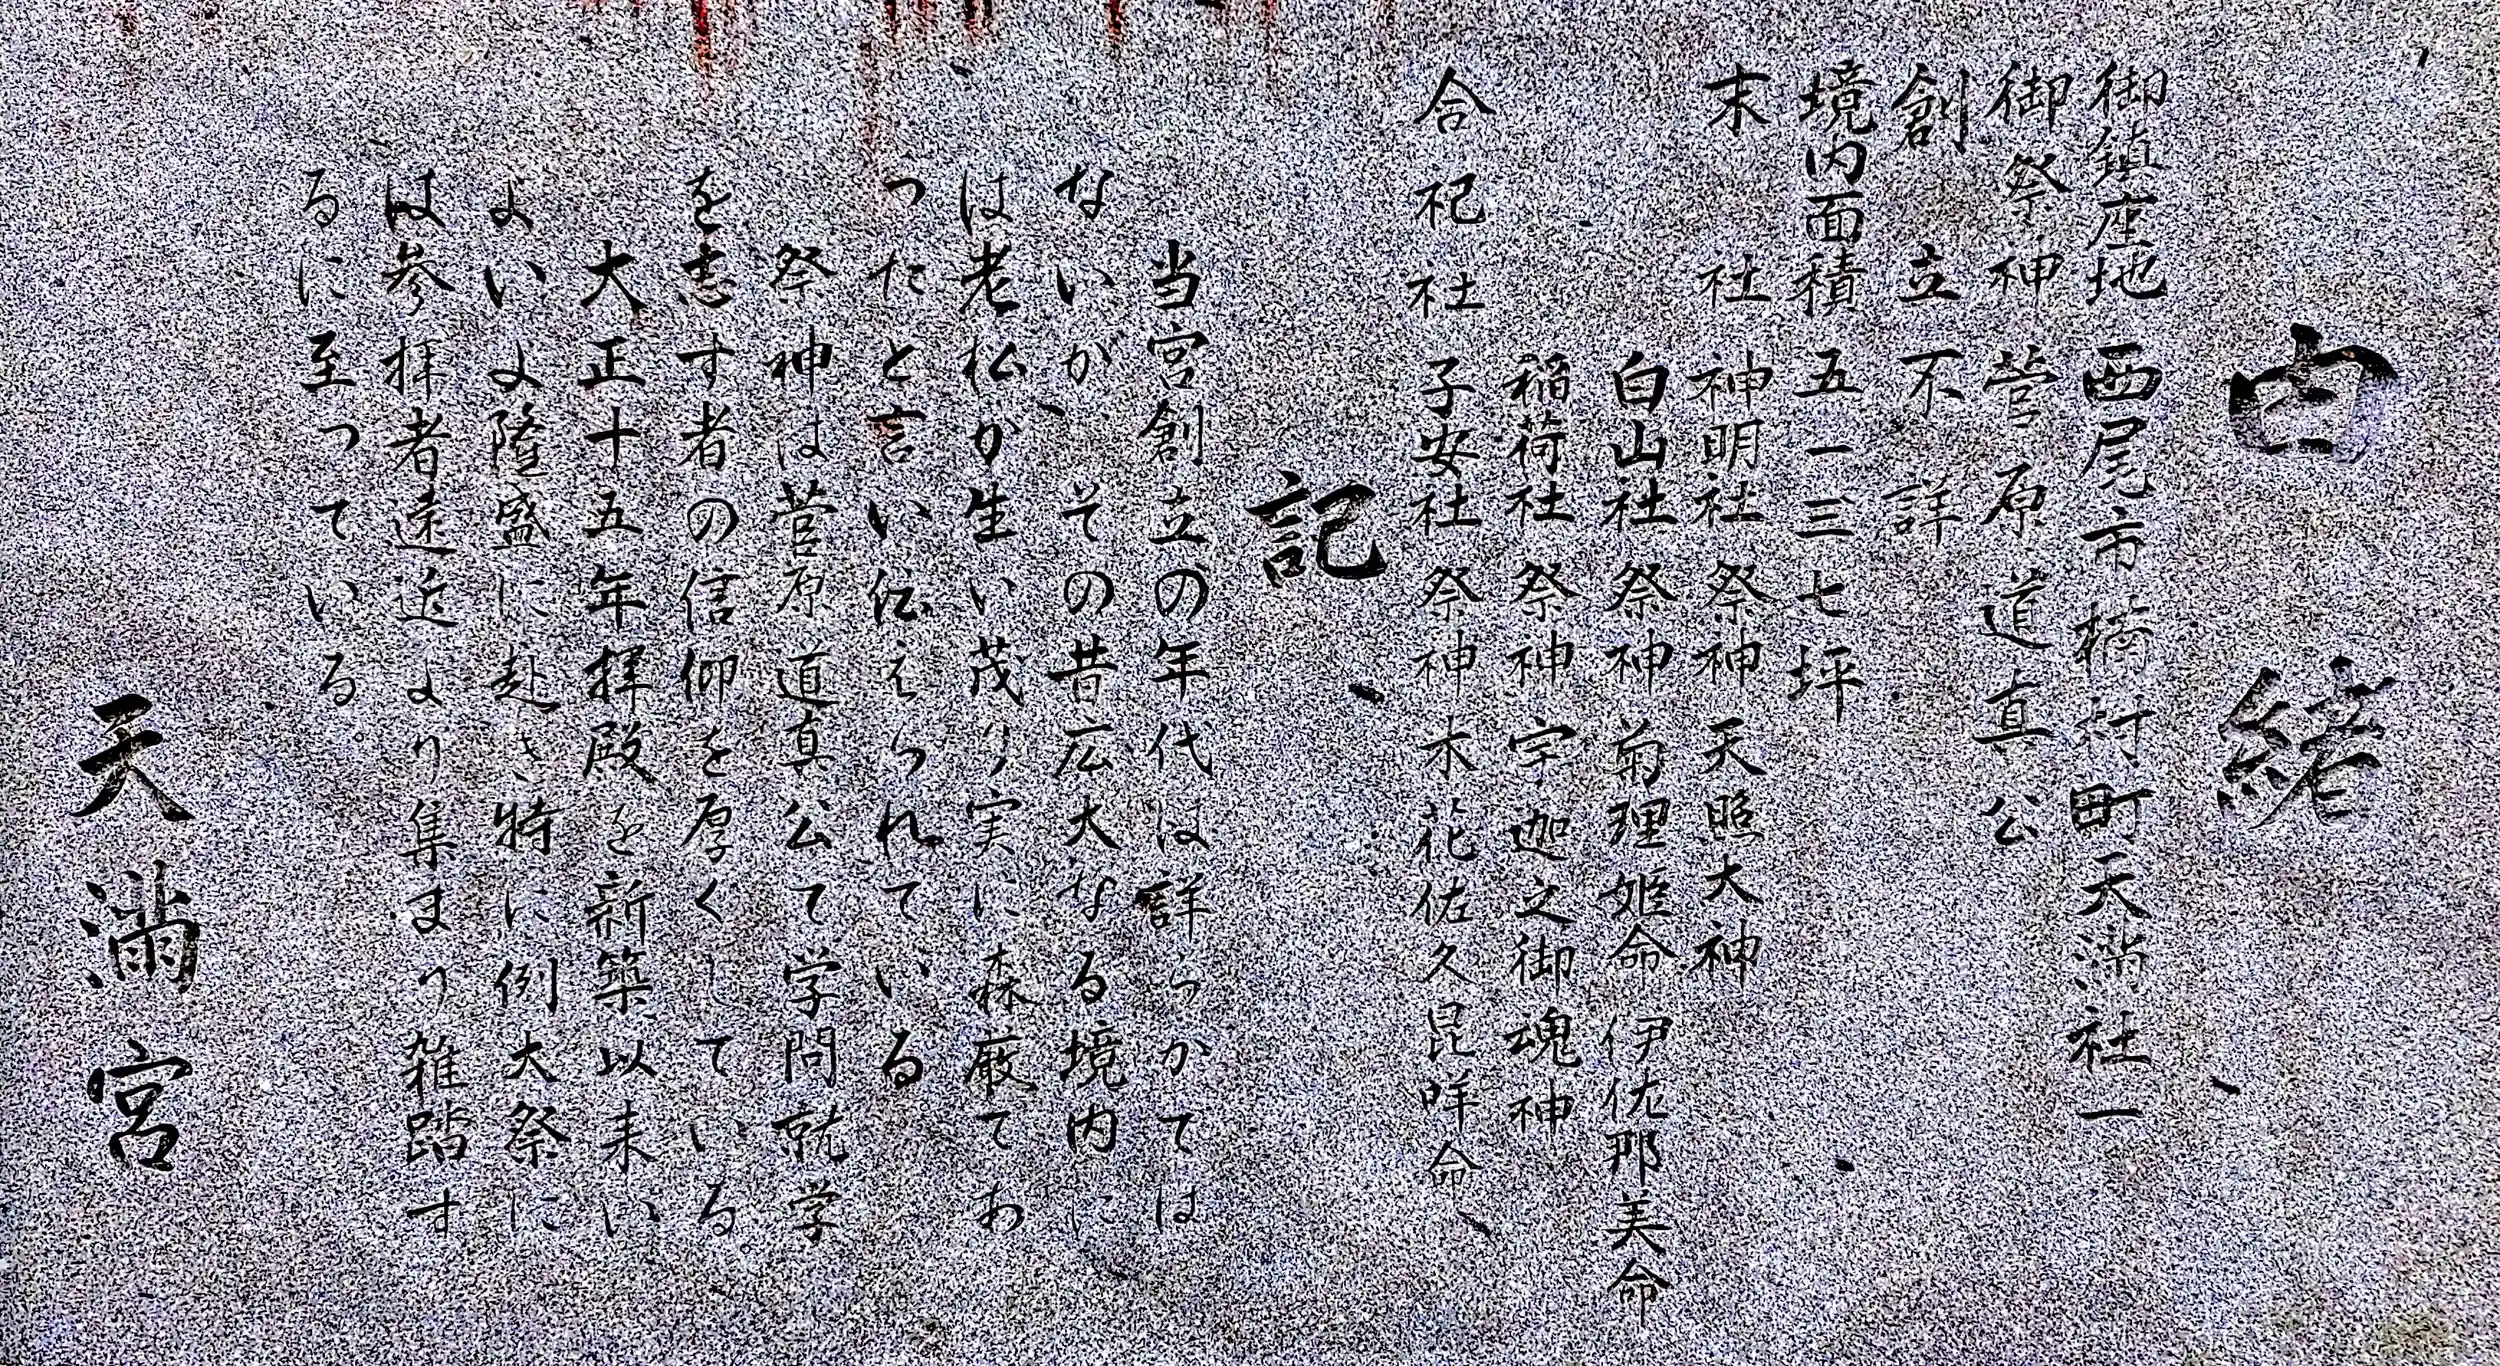 由緒
御鎮座地 西尾市楠村町天満社一
御祭神 菅原道真公
創立 不詳
境内面積 五一三七坪
末社 神明社 祭神 天照大神
白山社 祭神 菊理姫命 伊佐那美命
稲荷社 祭神 宇迦之御魂神
合祀社 子安社 祭神 木花佐久昆咩命
記
当宮創立の年代は詳らかてはは
ないが、その昔広大なる境内に
は老松が生い茂り実に森厳てあ
ったと言い伝えられている
祭神は菅原道真公て学問就学
を志す者の信仰を厚くしている
大正十五年拝殿を新築以来い
よいよ隆盛に赴き特に例大祭に
は参拝者遠近より集まり雑踏す
るに至っている。
天満宮